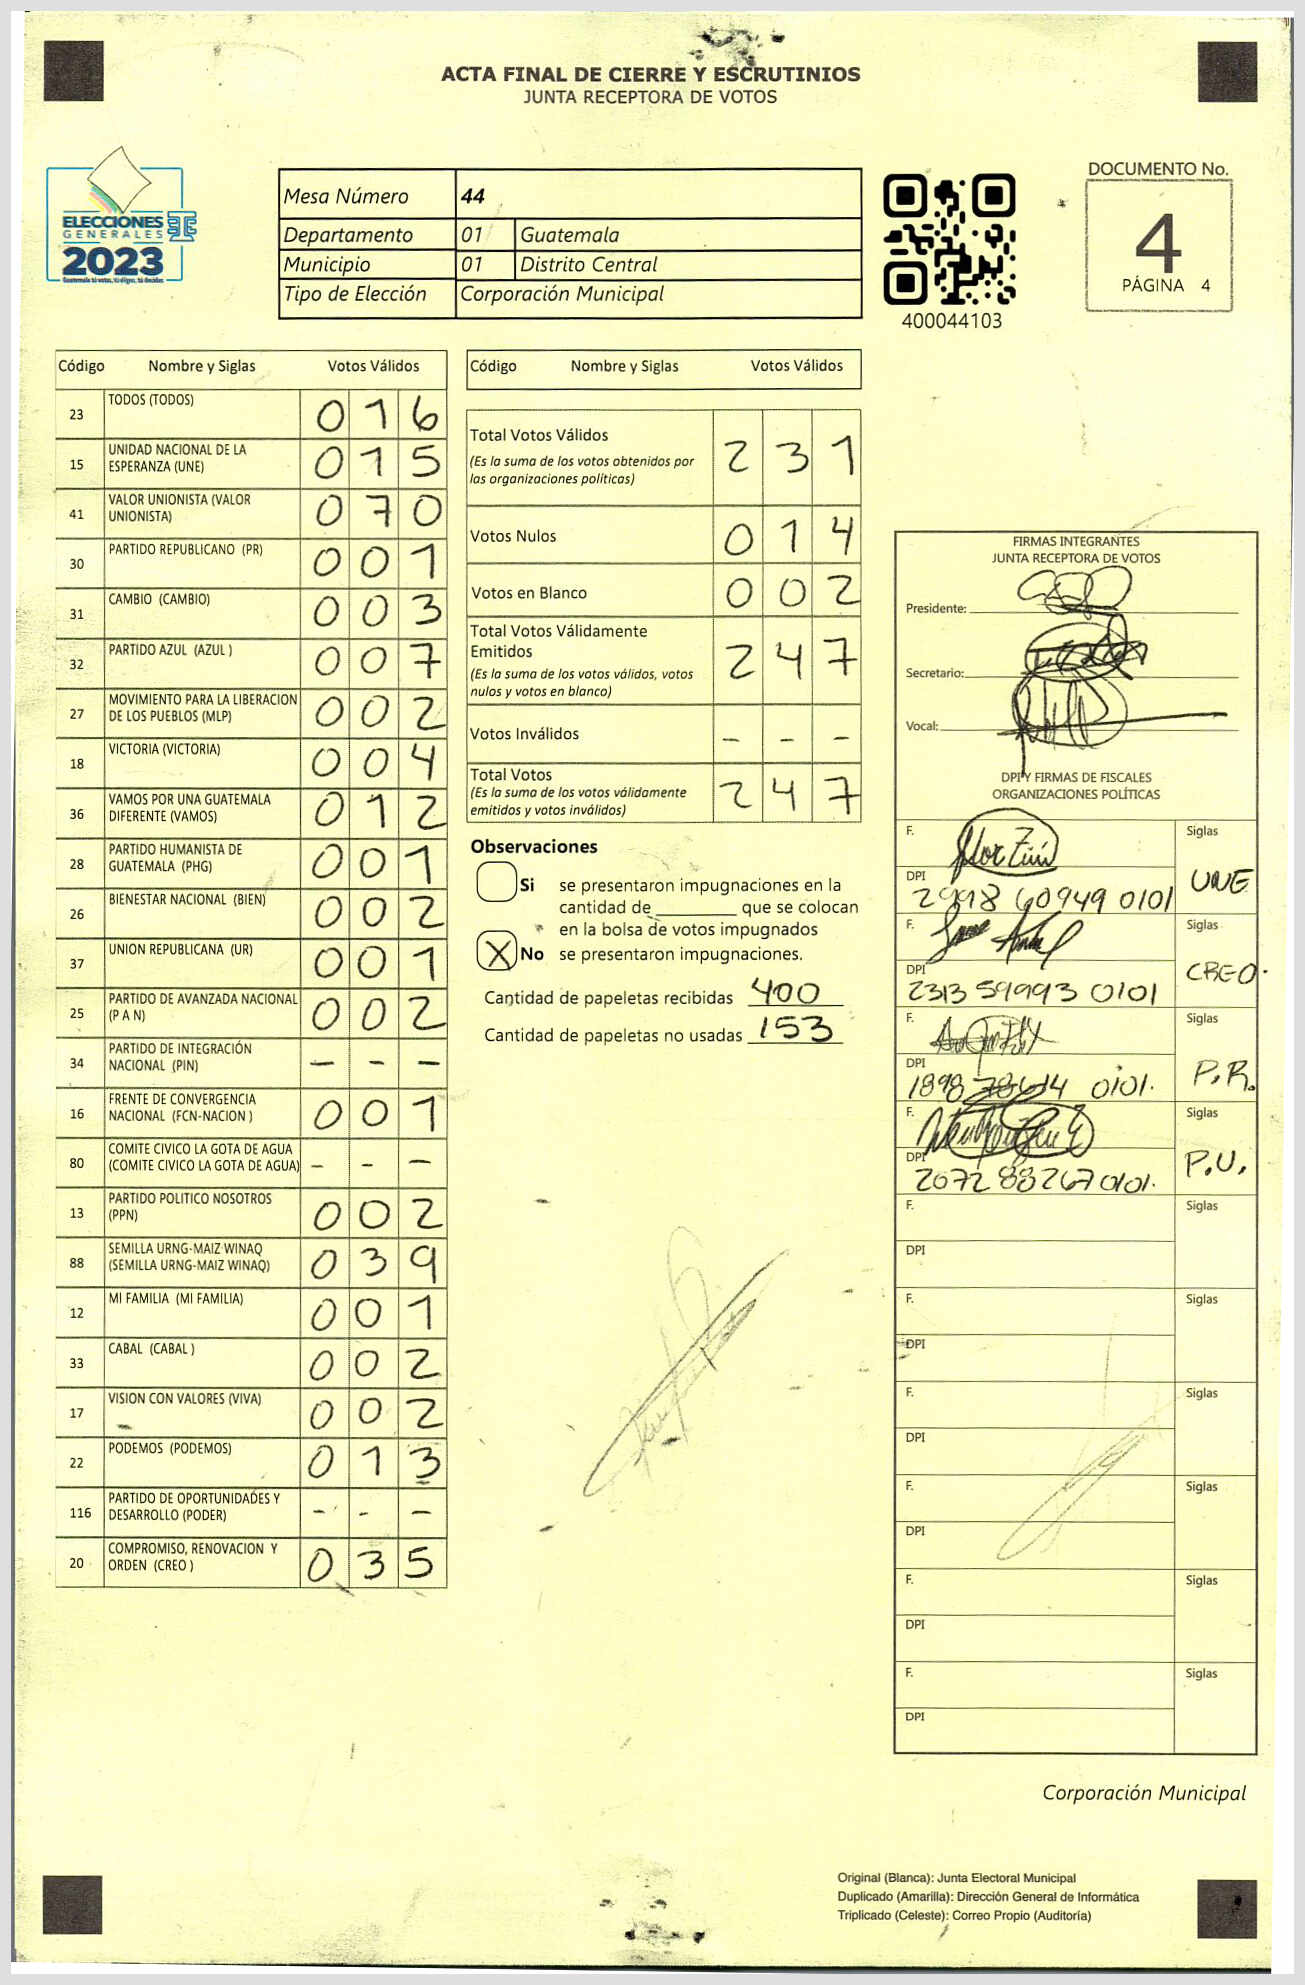 ACTA FINAL DE CIERRE Y ESCRUTINIOS
JUNTA RECEPTORA DE VOTOS
ELECCIONES
GENERALES
2023
Guatemala tú votas, tú eliges, tú decides
Mesa Número 44
Departamento 01 Guatemala
Municipio 01 Distrito Central
Tipo de Elección Corporación Municipal
400044103
DOCUMENTO No.
4
PÁGINA 4
Código Nombre y Siglas Votos Válidos
23 TODOS (TODOS) 016
15 UNIDAD NACIONAL DE LA
ESPERANZA (UNE) 015
41 VALOR UNIONISTA (VALOR
UNIONISTA) 070
30 PARTIDO REPUBLICANO (PR) 001
31 CAMBIO (CAMBIO) 003
32 PARTIDO AZUL (AZUL ) 007
27 MOVIMIENTO PARA LA LIBERACION
DE LOS PUEBLOS (MLP) 002
18 VICTORIA (VICTORIA) 004
36 VAMOS POR UNA GUATEMALA
DIFERENTE (VAMOS) 012
28 PARTIDO HUMANISTA DE
GUATEMALA (PHG) 001
26 BIENESTAR NACIONAL (BIEN) 002
37 UNION REPUBLICANA (UR) 001
25 PARTIDO DE AVANZADA NACIONAL
(P A N) 002
34 PARTIDO DE INTEGRACIÓN
NACIONAL (PIN) – – –
16 FRENTE DE CONVERGENCIA
NACIONAL (FCN-NACION ) 001
80 COMITE CIVICO LA GOTA DE AGUA
(COMITE CIVICO LA GOTA DE AGUA) – – –
13 PARTIDO POLITICO NOSOTROS
(PPN) 002
88 SEMILLA URNG-MAIZ WINAQ
(SEMILLA URNG-MAIZ WINAQ) 039
12 MI FAMILIA (MI FAMILIA) 001
33 CABAL (CABAL ) 002
17 VISION CON VALORES (VIVA) 002
22 PODEMOS (PODEMOS) 013
116 PARTIDO DE OPORTUNIDADES Y
DESARROLLO (PODER) – – –
20 COMPROMISO, RENOVACION Y
ORDEN (CREO ) 035
Código Nombre y Siglas Votos Válidos
Total Votos Válidos 231
(Es la suma de los votos obtenidos por
las organizaciones políticas)
Votos Nulos 014
Votos en Blanco 002
Total Votos Válidamente
Emitidos 247
(Es la suma de los votos válidos, votos
nulos y votos en blanco)
Votos Inválidos – – –
Total Votos 247
(Es la suma de los votos válidamente
emitidos y votos inválidos)
Observaciones
Si se presentaron impugnaciones en la
cantidad de ________ que se colocan
en la bolsa de votos impugnados
X No se presentaron impugnaciones.
Cantidad de papeletas recibidas 400
Cantidad de papeletas no usadas 153
FIRMAS INTEGRANTES
JUNTA RECEPTORA DE VOTOS
Presidente:
Secretario:
Vocal:
DPI Y FIRMAS DE FISCALES
ORGANIZACIONES POLÍTICAS
F. Siglas
DPI UNE
2998 60949 0101
F. Siglas
DPI CREO.
2313 59993 0101
F. Siglas
DPI P.R.
1898 78614 0101.
F. Siglas
DPI P.U.
2072 88267 0101.
F. Siglas
DPI
F. Siglas
DPI
F. Siglas
DPI
F. Siglas
DPI
F. Siglas
DPI
F. Siglas
DPI
Corporación Municipal
Original (Blanca): Junta Electoral Municipal
Duplicado (Amarilla): Dirección General de Informática
Triplicado (Celeste): Correo Propio (Auditoría)